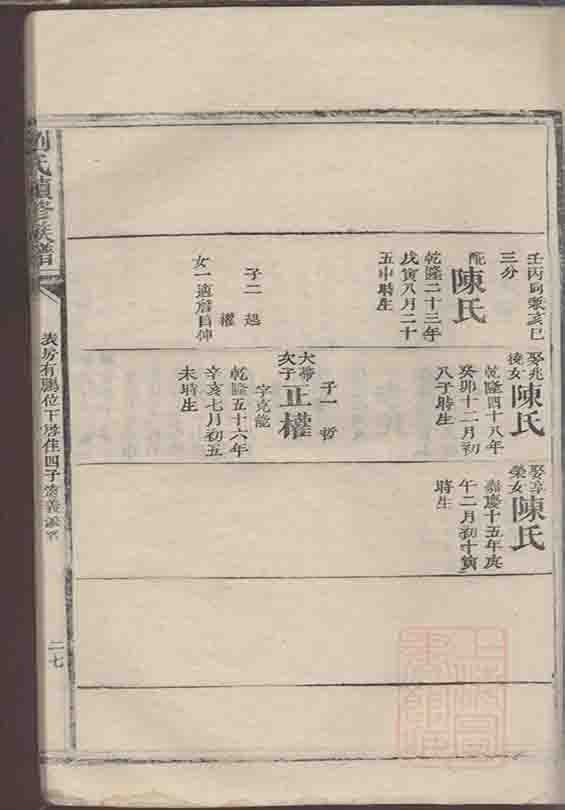 壬丙向兼亥巳
三分
配
陳氏
乾隆二十三年
戊寅八月二十
五申時生
子二 
權
女一適詹自仲
娶兆
後女
陳氏
乾隆四十八年
癸卯十二月初
八子時生
子一 哲
大帶
次子
正權
字克能
乾隆五十六年
辛亥七月初五
未時生
娶享
榮女
陳氏
嘉慶十五年庚
午二月初十寅
時生
劉氏續修族譜
表房有鵬位下啓佳四子
二七